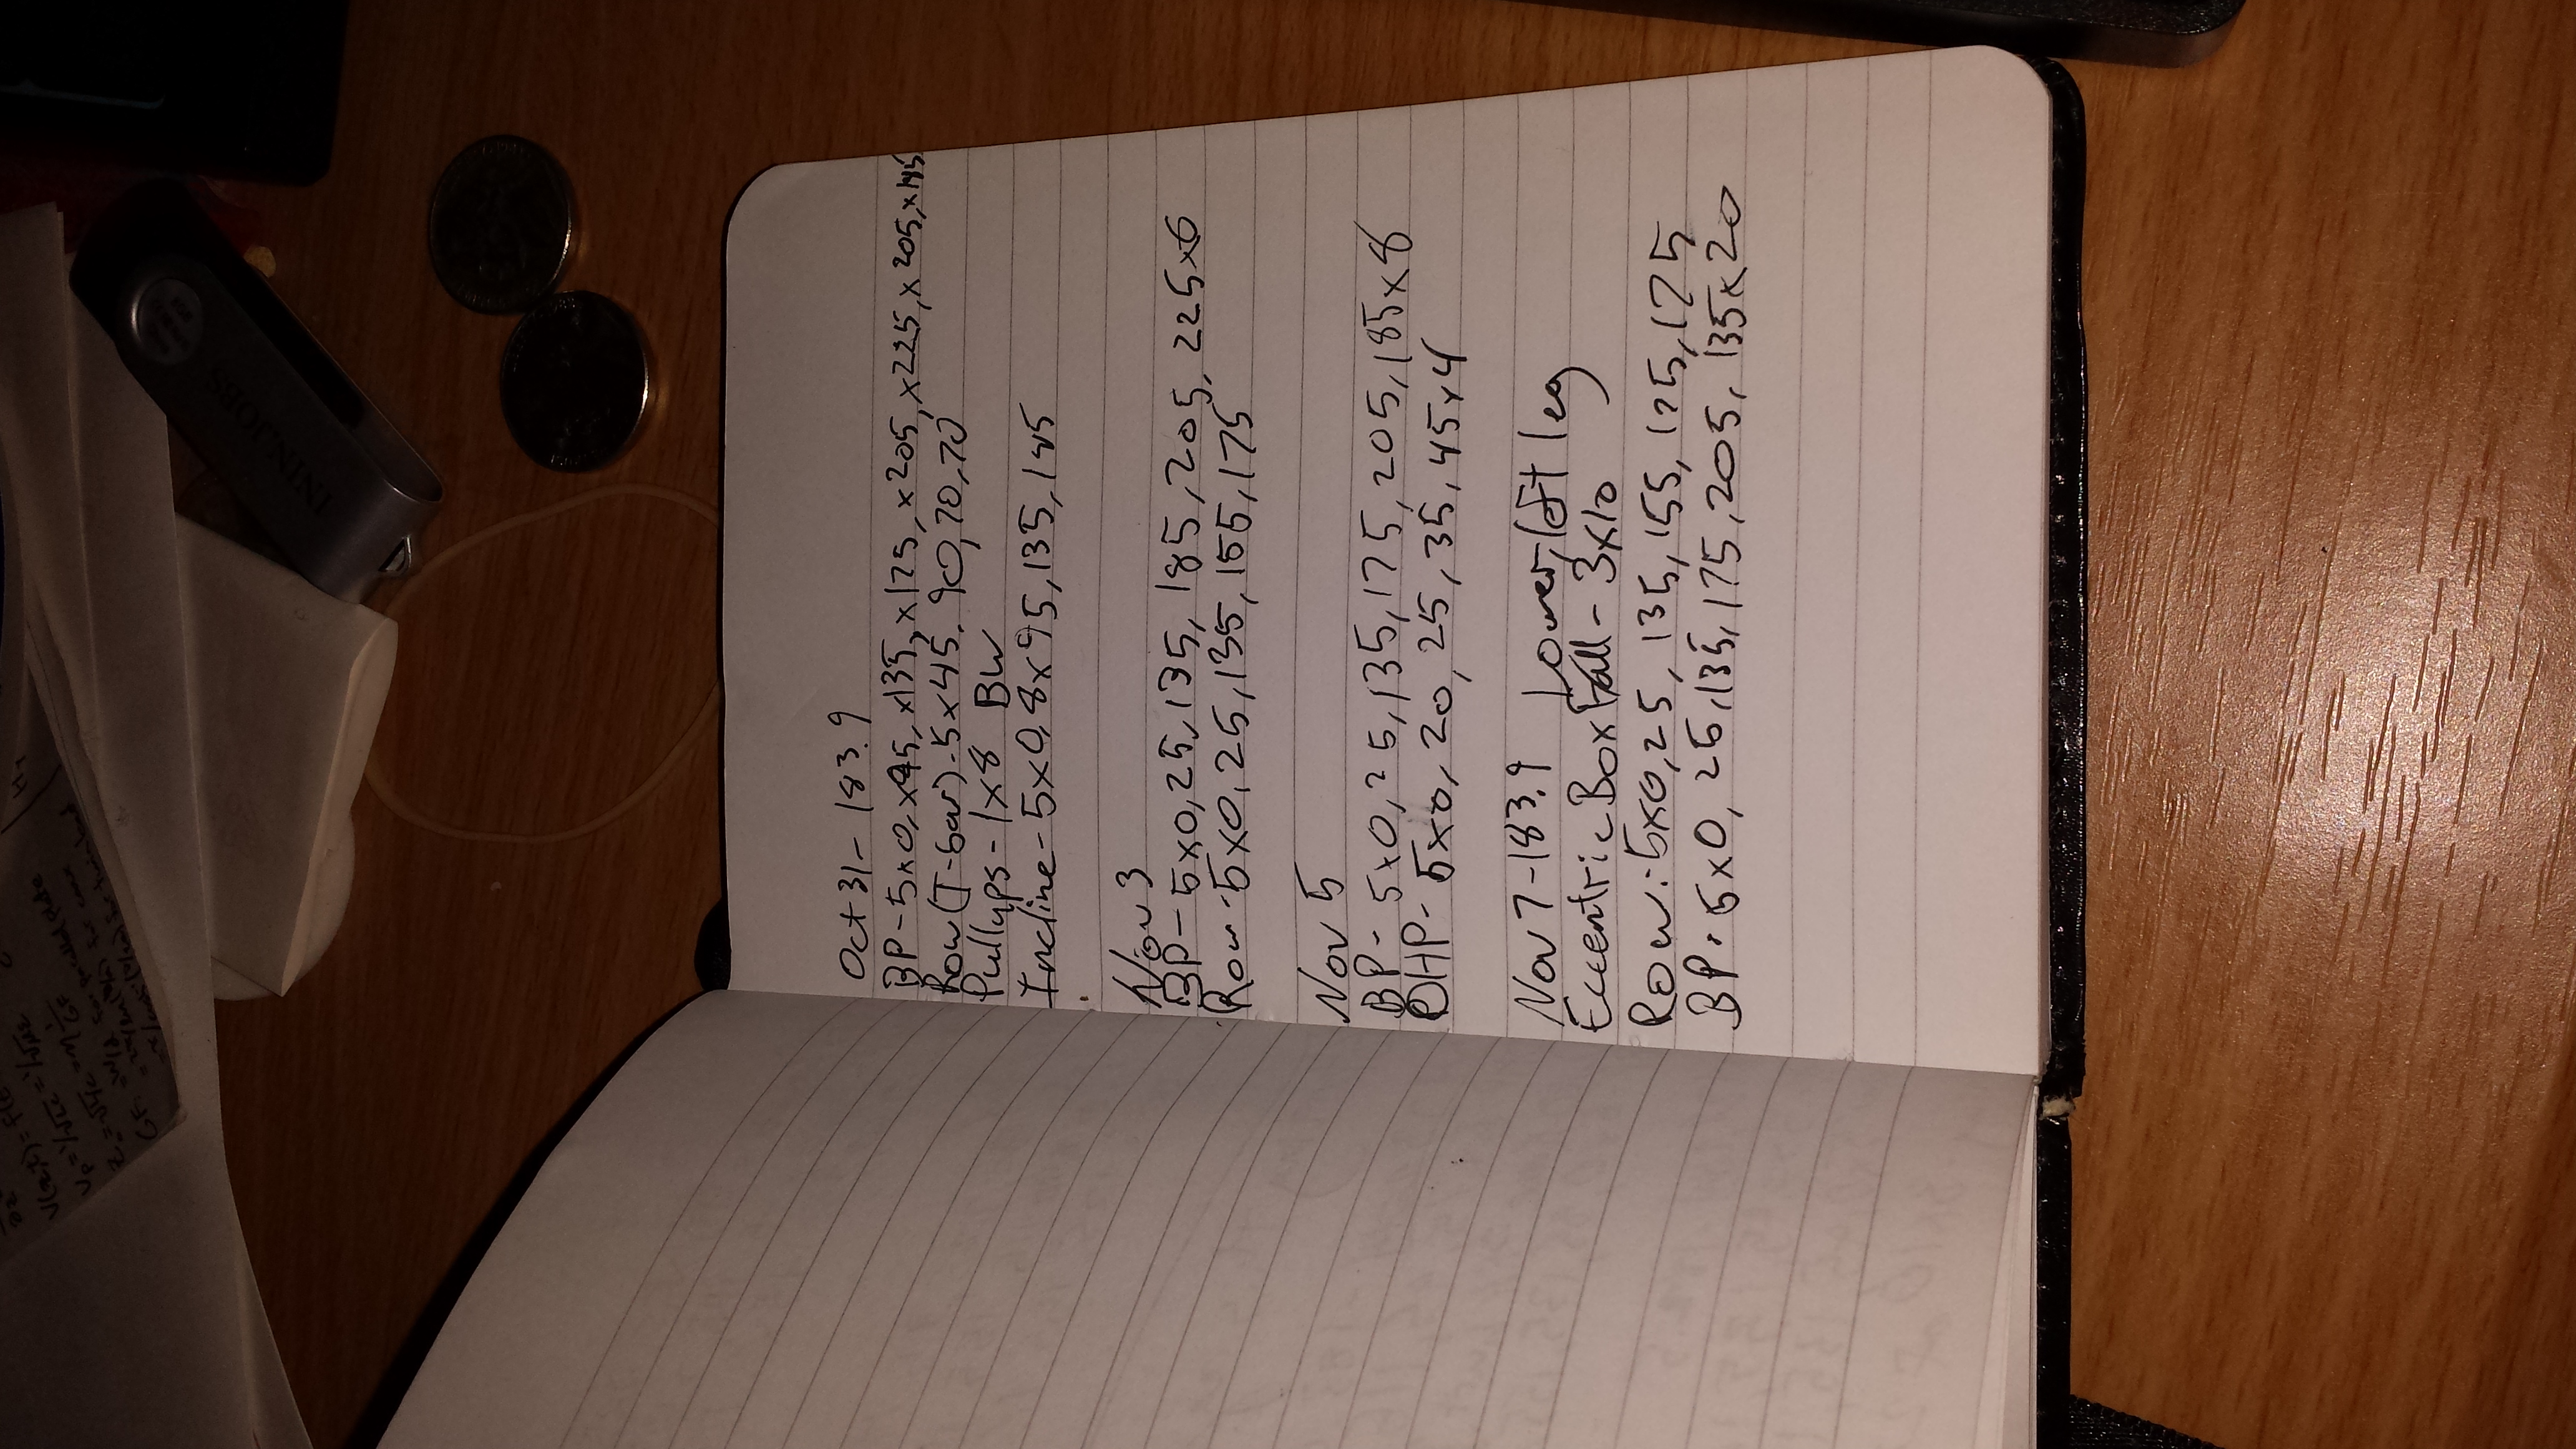 V(z,t) = f(t
Vp = 1/√LC = 1/√με
Z = √L/C = η 1/GF
GF: = W/d for parallel plate
for coax
for twin lead
ININJOBS
Oct 31 - 183.9
BP - 5x0, x95, x135, x175, x205, x225, x205, x185
Row (T-bar) - 5x45, 90, 70, 70
Pullups - 1x8 BW
Incline - 5x0, 8x95, 135, 185
Nov 3
BP - 5x0, 25, 135, 185, 205, 225x6
Row - 5x0, 25, 135, 155, 175
Nov 5
BP - 5x0, 25, 135, 175, 205, 185x8
OHP - 5x0, 20, 25, 35, 45x4
Nov 7 - 183.9 Lower, left leg
Eccentric Box Fall - 3x10
Row: 5x0, 25, 135, 155, 175, 175
BP. 5x0, 25, 135, 175, 205, 135x20